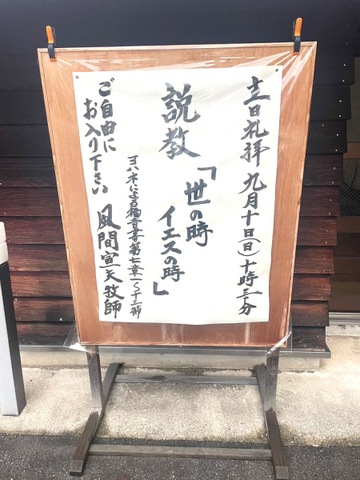 主日礼拝 九月十日(日)十時三十分
説教「世の時
イエスの時」
ヨハネによる福音書第七章一〜十三節
ご自由に
お入り下さい
風間宣夫牧師